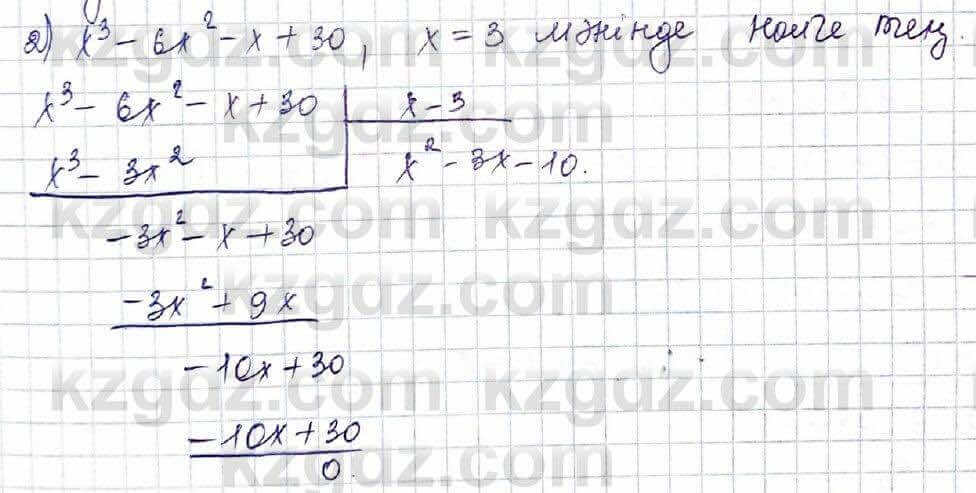 2) x³ - 6x² - x + 30, x = 3 мәнінде нөлге тең.
x³ - 6x² - x + 30 | x - 3
x³ - 3x² | x² - 3x - 10.
-3x² - x + 30
-3x² + 9x
-10x + 30
-10x + 30
0.
kzgdz.com kzgdz.com
kzgdz.com
kzgdz.com kzgdz.com
kzgdz.com
kzgdz.com kzgdz.com
kzgdz.com